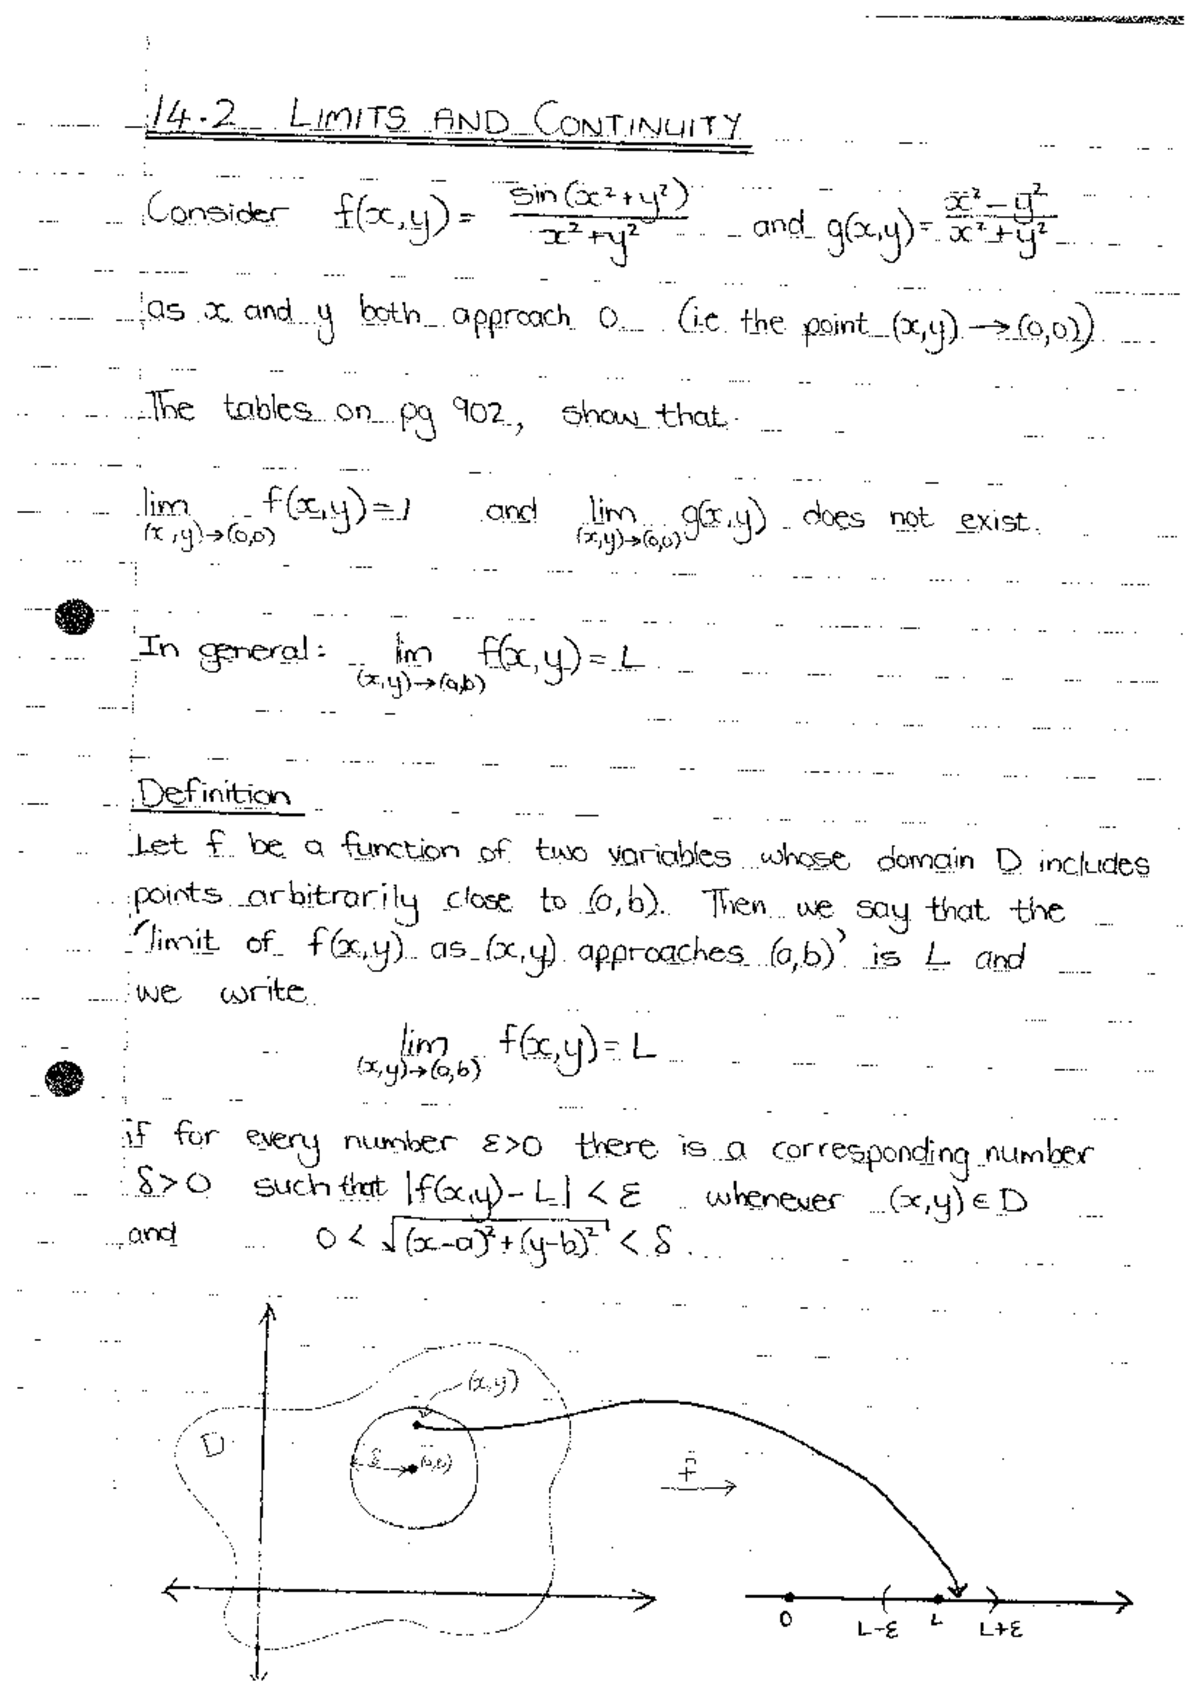 14.2 LIMITS AND CONTINUITY
Consider f(x,y) = sin(x²+y²)/(x²+y²) and g(x,y) = (x²-y²)/(x²+y²)
as x and y both approach 0 (i.e the point (x,y) → (0,0))
The tables on pg 902, show that
lim (x,y)→(0,0) f(x,y) = 1 and lim (x,y)→(0,0) g(x,y) does not exist.
In general: lim (x,y)→(a,b) f(x,y) = L
Definition
Let f be a function of two variables whose domain D includes
points arbitrarily close to (a,b). Then we say that the
'limit of f(x,y) as (x,y) approaches (a,b)' is L and
we write
lim (x,y)→(a,b) f(x,y) = L
if for every number ε>0 there is a corresponding number
δ>0 such that |f(x,y) - L| < ε whenever (x,y) ∈ D
and 0 < √((x-a)²+(y-b)²) < δ
(x,y)
D
δ (a,b)
f
0 L-ε L L+ε